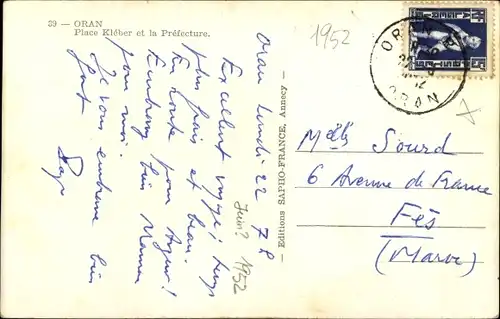 39 — ORAN
Place Kléber et la Préfecture.
1952
ORAN
ORAN
Oran Lundi 22 7h
Juin? 1952
Excellent voyage; temps
plus frais et beau.
En route pour Alger!
Embrassez bien Maman
pour moi.
Je vous embrasse bien
fort
— Editions SAPHO-FRANCE, Annecy —
Melle Sourd
6 Avenue de France
Fès
(Maroc)